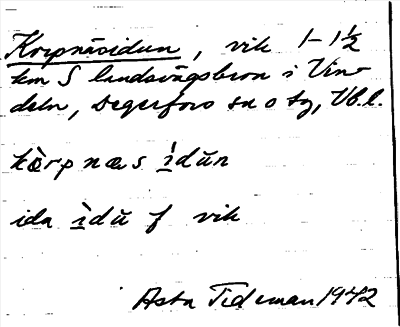 Korpnäsidun, vik 1-1½
km S landsvägsbron i Vin-
deln, Degerfors sn o tg, Vb.l.
kòrpnæs ìdŭn
ida ìdŭ f vik
Asta Tideman 1942